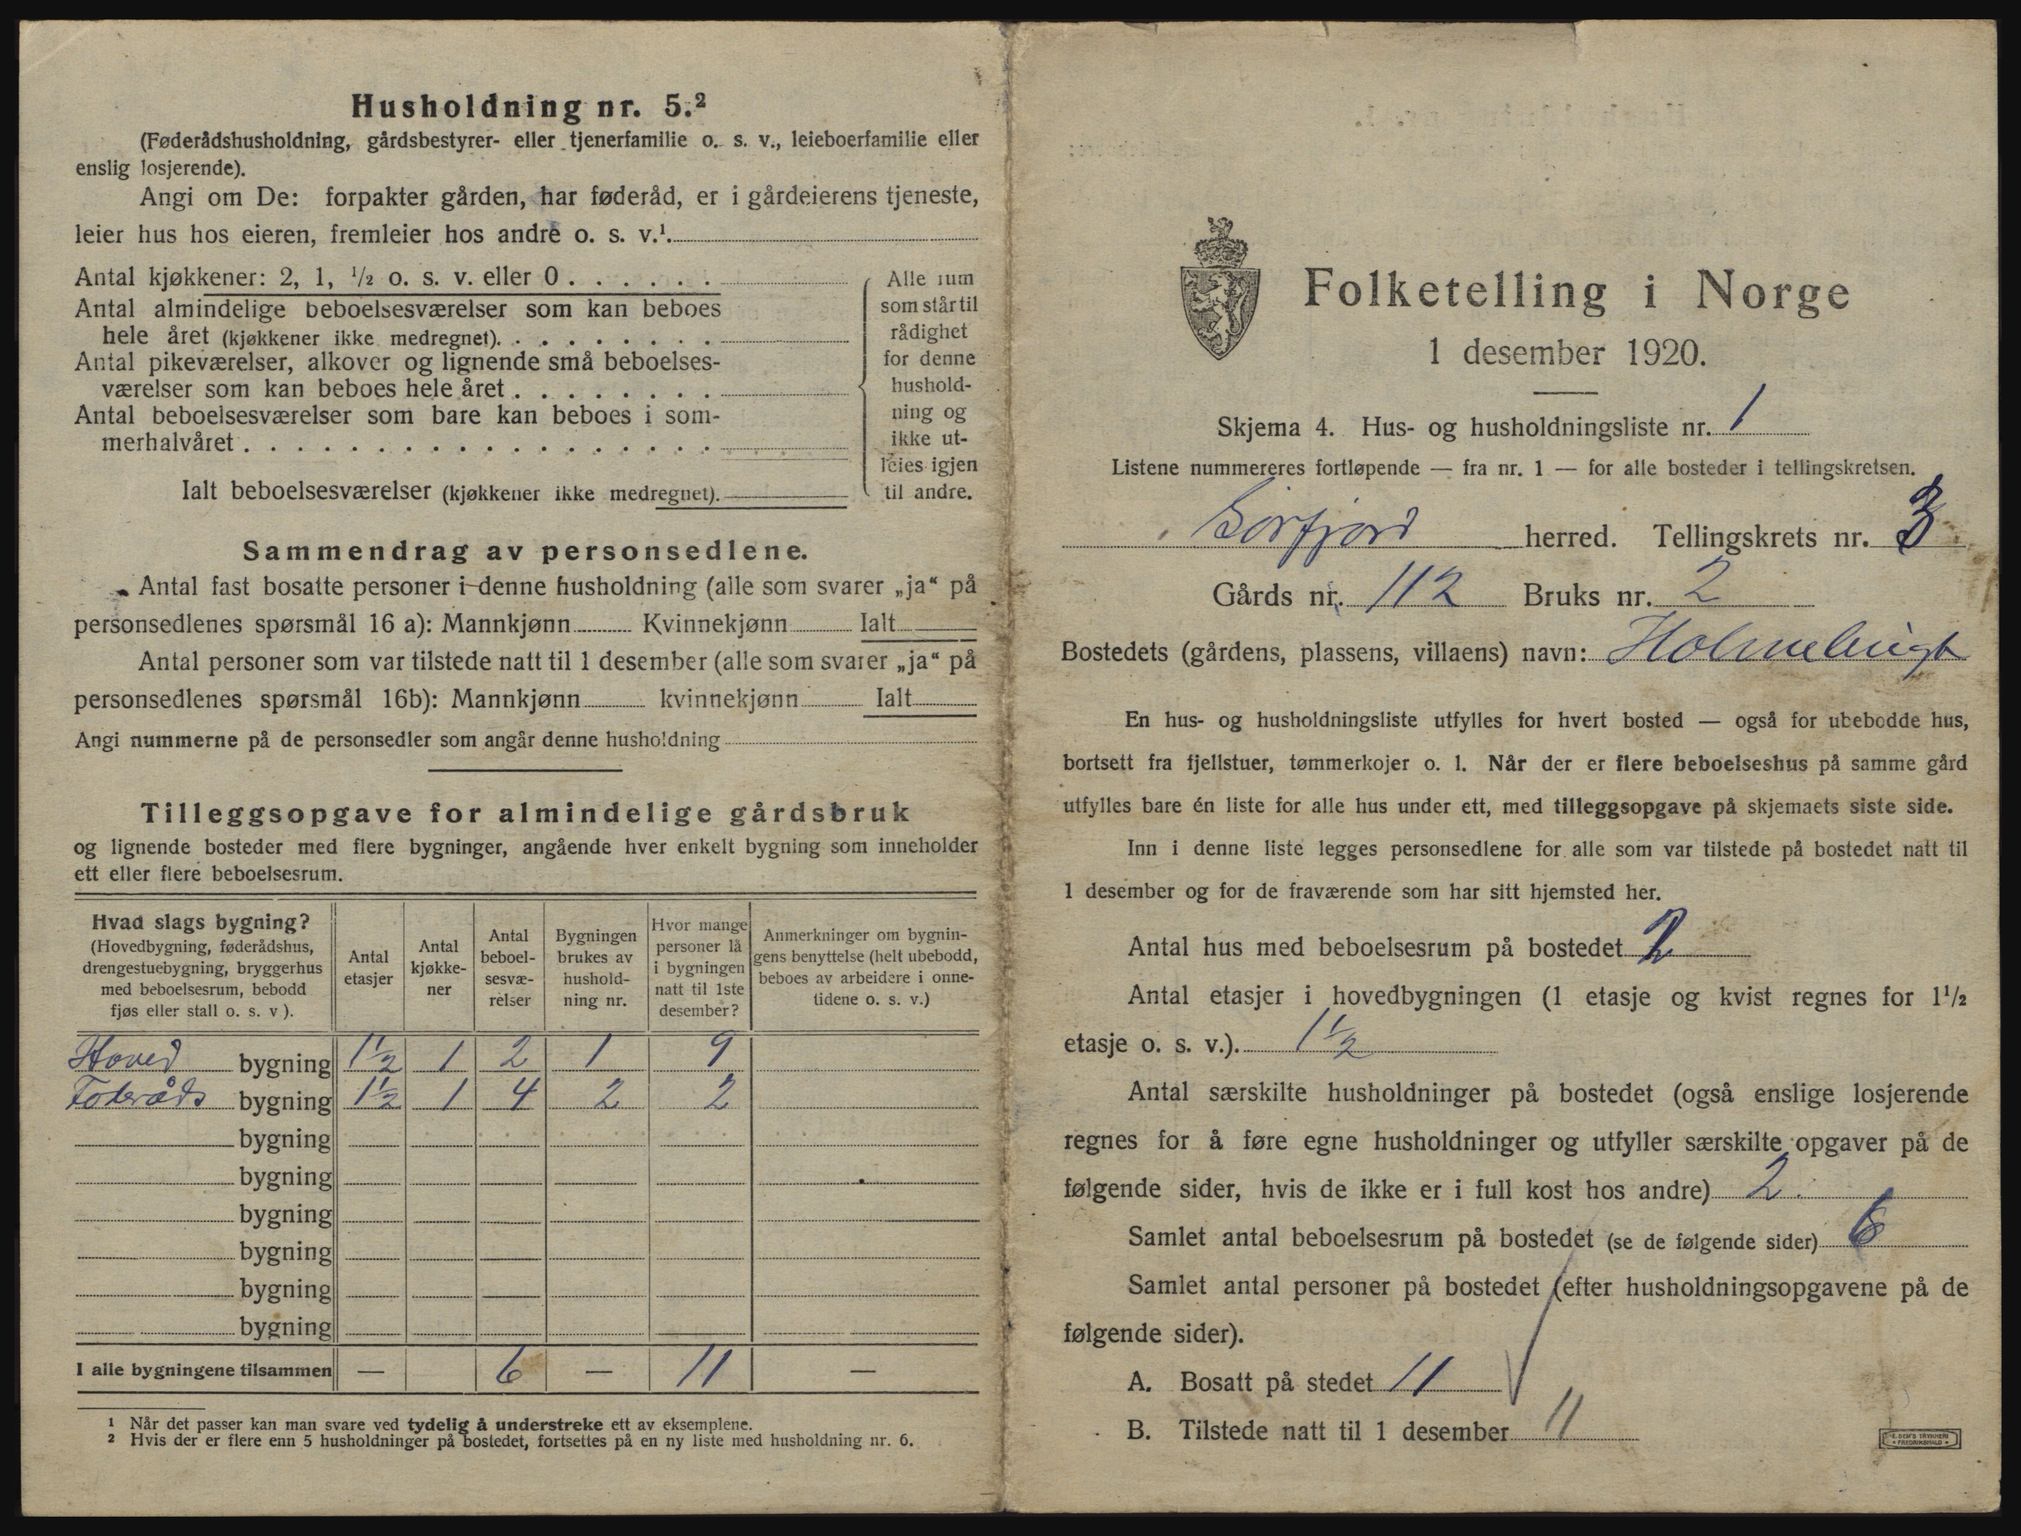 Husholdning nr. 5.²
(Føderådshusholdning, gårdsbestyrer- eller tjenerfamilie o. s. v., leieboerfamilie eller
enslig losjerende).
Angi om De: forpakter gården, har føderåd, er i gårdeierens tjeneste,
leier hus hos eieren, fremleier hos andre o. s. v.¹
Antal kjøkkener: 2, 1, ¹/₂ o. s. v. eller 0
Antal almindelige beboelsesværelser som kan beboes
hele året (kjøkkener ikke medregnet)
Antal pikeværelser, alkover og lignende små beboelses-
værelser som kan beboes hele året
Antal beboelsesværelser som bare kan beboes i som-
merhalvåret
Ialt beboelsesværelser (kjøkkener ikke medregnet)
Alle rum
som står til
rådighet
for denne
hushold-
ning og
ikke ut-
leies igjen
til andre.
Sammendrag av personsedlene.
Antal fast bosatte personer i denne husholdning (alle som svarer „ja“ på
personsedlenes spørsmål 16 a): Mannkjønn Kvinnekjønn Ialt
Antal personer som var tilstede natt til 1 desember (alle som svarer „ja“ på
personsedlenes spørsmål 16b): Mannkjønn kvinnekjønn Ialt
Angi nummerne på de personsedler som angår denne husholdning
Tilleggsopgave for almindelige gårdsbruk
og lignende bosteder med flere bygninger, angående hver enkelt bygning som inneholder
ett eller flere beboelsesrum.
Hvad slags bygning?
(Hovedbygning, føderådshus,
drengestuebygning, bryggerhus
med beboelsesrum, bebodd
fjøs eller stall o. s. v ).
Antal
etasjer
Antal
kjøkke-
ner
Antal
beboel-
sesvæ-
relser
Bygningen
brukes av
hushold-
ning nr.
Hvor mange
personer lå
i bygningen
natt til 1ste
desember?
Anmerkninger om bygnin-
gens benyttelse (helt ubebodd,
beboes av arbeidere i onne-
tidene o. s. v.)
Hoved bygning 1½ 1 2 1 9
Foderåds bygning 1½ 1 4 2 2
bygning
bygning
bygning
bygning
bygning
bygning
I alle bygningene tilsammen — 6 — 11 —
¹ Når det passer kan man svare ved tydelig å understreke ett av eksemplene.
² Hvis der er flere enn 5 husholdninger på bostedet, fortsettes på en ny liste med husholdning nr. 6.
Folketelling i Norge
1 desember 1920.
Skjema 4. Hus- og husholdningsliste nr. 1
Listene nummereres fortløpende — fra nr. 1 — for alle bosteder i tellingskretsen.
Sørfjord herred. Tellingskrets nr. 3
Gårds nr. 112 Bruks nr. 2
Bostedets (gårdens, plassens, villaens) navn: Holmebugt
En hus- og husholdningsliste utfylles for hvert bosted — også for ubebodde hus,
bortsett fra fjellstuer, tømmerkojer o. l. Når der er flere beboelseshus på samme gård
utfylles bare én liste for alle hus under ett, med tilleggsopgave på skjemaets siste side.
Inn i denne liste legges personsedlene for alle som var tilstede på bostedet natt til
1 desember og for de fraværende som har sitt hjemsted her.
Antal hus med beboelsesrum på bostedet 2
Antal etasjer i hovedbygningen (1 etasje og kvist regnes for 1¹/₂
etasje o. s. v.). 1½
Antal særskilte husholdninger på bostedet (også enslige losjerende
regnes for å føre egne husholdninger og utfyller særskilte opgaver på de
følgende sider, hvis de ikke er i full kost hos andre) 2.
Samlet antal beboelsesrum på bostedet (se de følgende sider) 6
Samlet antal personer på bostedet (efter husholdningsopgavene på de
følgende sider).
A. Bosatt på stedet 11
B. Tilstede natt til 1 desember 11